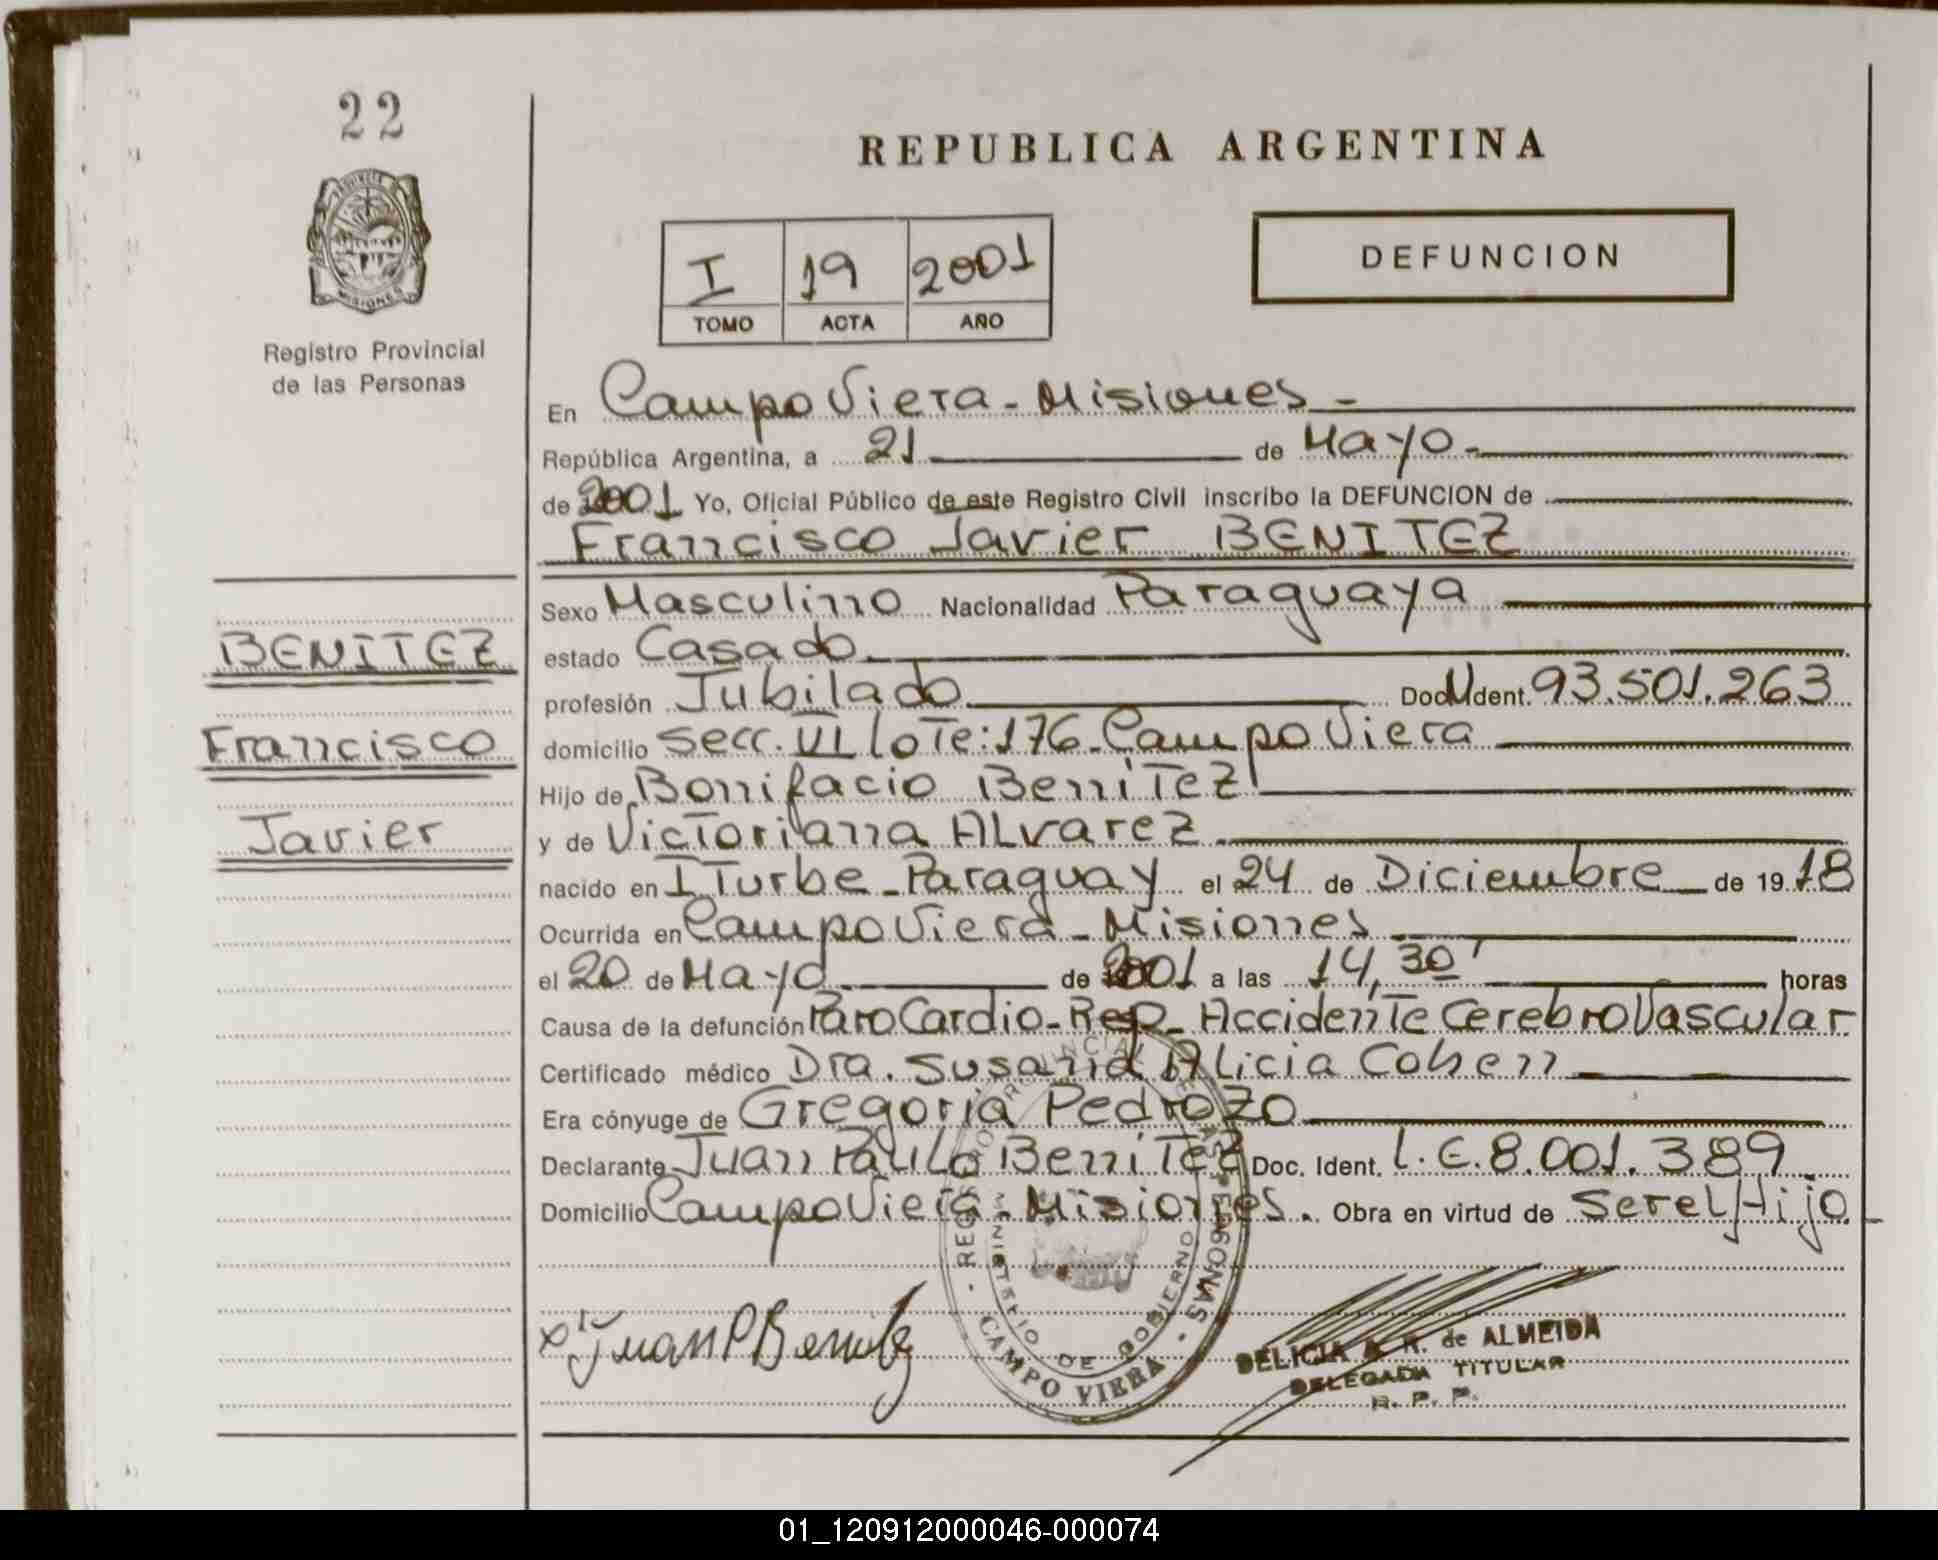 22
PROVINCIA
MISIONES
Registro Provincial
de las Personas
BENITEZ
Francisco
Javier
REPUBLICA ARGENTINA
I 19 2001
TOMO ACTA AÑO
DEFUNCION
En Campo Viera - Misiones -
República Argentina, a 21 de Mayo -
de 2001 Yo, Oficial Público de este Registro Civil inscribo la DEFUNCION de
Francisco Javier BENITEZ
Sexo Masculino Nacionalidad Paraguaya
estado Casado
profesión Jubilado Doc. Ident. 93.501.263
domicilio Secc. VI lote: 176 - Campo Viera
Hijo de Bonifacio Benitez
y de Victoriana Alvarez
nacido en ITurbe - Paraguay el 24 de Diciembre de 19 18
Ocurrida en Campo Viera - Misiones
el 20 de Mayo de 2001 a las 14,30' horas
Causa de la defunción Paro Cardio - Resp - Accidente Cerebro Vascular
Certificado médico Dra. Susana Alicia Cohen
Era cónyuge de Gregoria Pedrozo
Declarante Juan Paulo Benitez Doc. Ident. L.E. 8.001.389
Domicilio Campo Viera - Misiones. Obra en virtud de Ser el Hijo
Juan P Benitez
MINISTERIO DE GOBIERNO
CAMPO VIERA
DELICIA A. R. de ALMEIDA
DELEGADA TITULAR
R. P. P.
01_120912000046-000074